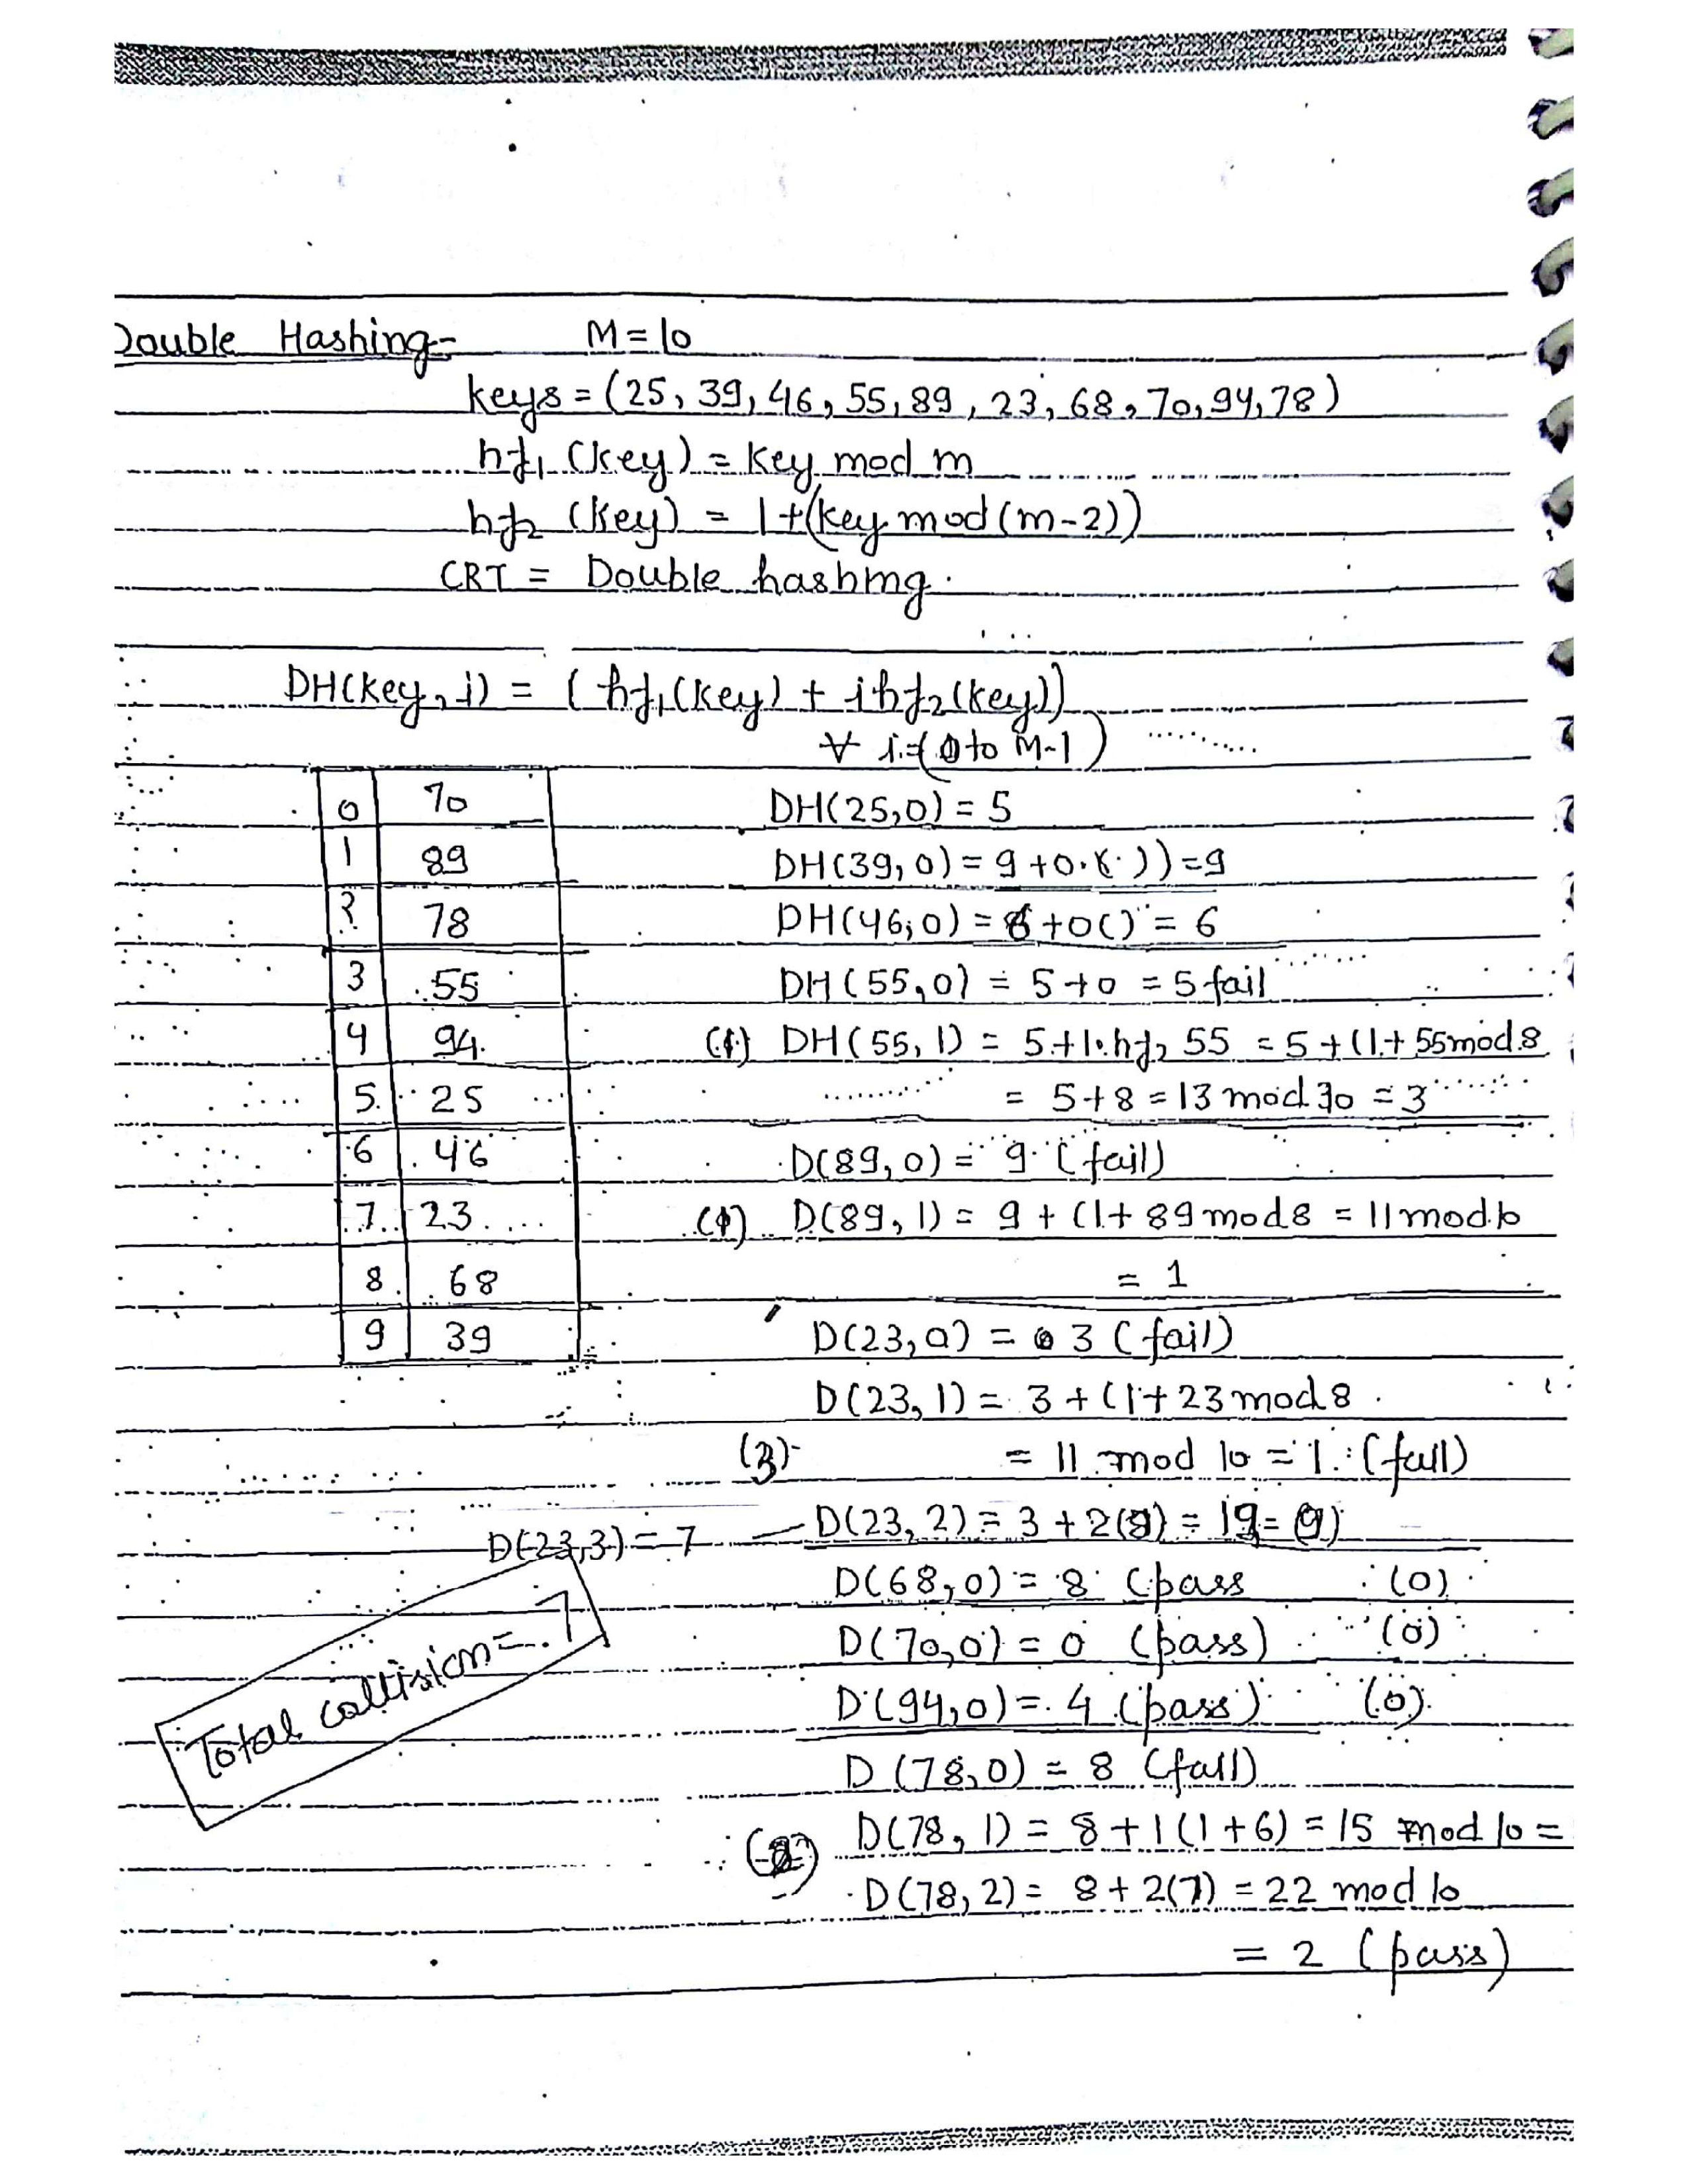 Double Hashing- M=10
keys = (25, 39, 46, 55, 89, 23, 68, 70, 94, 78)
hf1 (key) = key mod m
hf2 (key) = 1+(key mod (m-2))
CRT = Double hashing.
DH(key, i) = (hf1(key) + ihf2(key))
∀ i=(0 to M-1)
0 70
1 89
2 78
3 55
4 94
5 25
6 46
7 23
8 68
9 39
DH(25,0) = 5
DH(39, 0) = 9 +0.( )) =9
DH(46,0) = 6 +0() = 6
DH(55,0) = 5+0 = 5 fail
(1) DH(55, 1) = 5+1.hf2 55 = 5 + (1+ 55mod8
= 5+8 = 13 mod 10 = 3
D(89,0) = 9 (fail)
(1) D(89, 1) = 9 + (1+ 89 mod8 = 11 mod 10
= 1
D(23,0) = 3 (fail)
D(23, 1) = 3 + (1+ 23 mod 8
(3) = 11 mod 10 = 1. (fail)
D(23,3) = 7 — D(23, 2) = 3 + 2(8) = 19 = (9)
D(68,0) = 8 (pass (0)
D(70,0) = 0 (pass) (0)
D(94,0) = 4 (pass) (0)
Total collision = 7
D (78,0) = 8 (fail)
(2) D(78, 1) = 8 + 1 (1+6) = 15 mod 10 =
D(78, 2) = 8 + 2(7) = 22 mod 10
= 2 (pass)